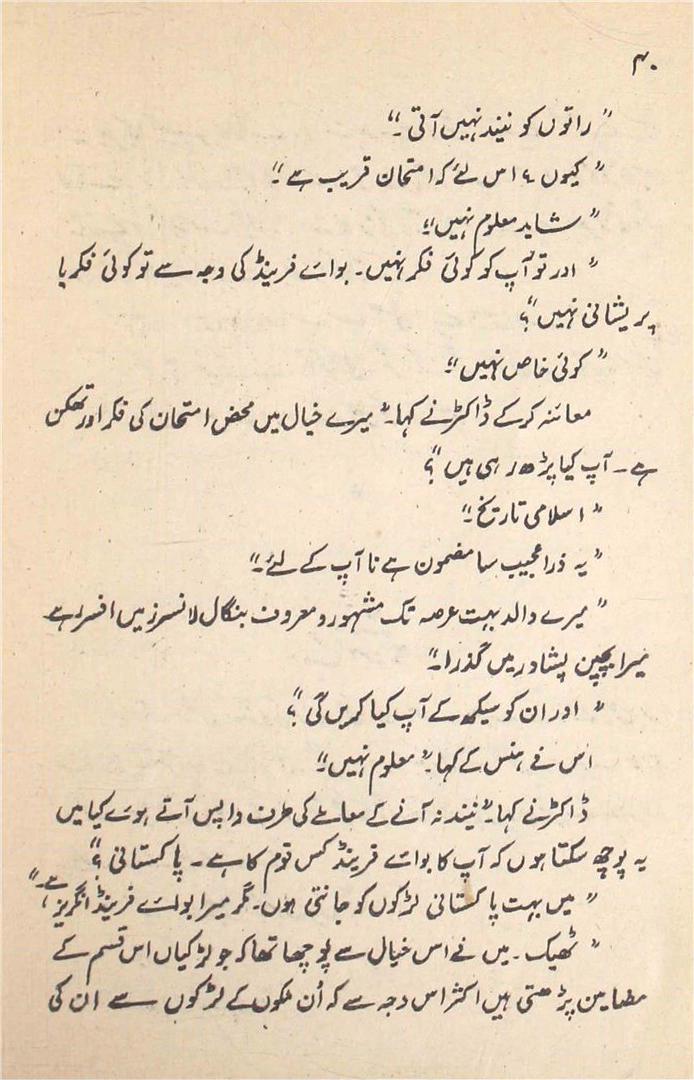 ۴۰
"راتوں کو نیند نہیں آتی۔"
"کیوں؟ اس لئے کہ امتحان قریب ہے۔"
"شاید معلوم نہیں۔"
"اور تو آپ کو کوئی فکر نہیں۔ بوائے فرینڈ کی وجہ سے تو کوئی فکر یا
پریشانی نہیں"؟
"کوئی خاص نہیں۔"
معائنہ کرکے ڈاکٹر نے کہا۔ "میرے خیال میں محض امتحان کی فکر اور تھکن
ہے۔ آپ کیا پڑھ رہی ہیں"؟
"اسلامی تاریخ۔"
"یہ ذرا عجیب سا مضمون ہے نا آپ کے لئے۔"
"میرے والد بہت عرصہ تک مشہور و معروف بنگال لانسرز میں افسر رہے۔
میرا بچپن پشاور میں گذرا۔"
"اور ان کو سیکھ کے آپ کیا کریں گی"؟
اس نے ہنس کے کہا۔ "معلوم نہیں۔"
ڈاکٹر نے کہا۔ "نیند نہ آنے کے معاملے کی طرف واپس آتے ہوئے کیا میں
یہ پوچھ سکتا ہوں کہ آپ کا بوائے فرینڈ کس قوم کا ہے۔ پاکستانی"؟
"میں بہت پاکستانی لڑکوں کو جانتی ہوں۔ مگر میرا بوائے فرینڈ انگریز ہے۔"
"ٹھیک۔ میں نے اس خیال سے پوچھا تھا کہ جو لڑکیاں اس قسم کے
مضامین پڑھتی ہیں اکثر اس وجہ سے کہ اُن ملکوں کے لڑکوں سے ان کی